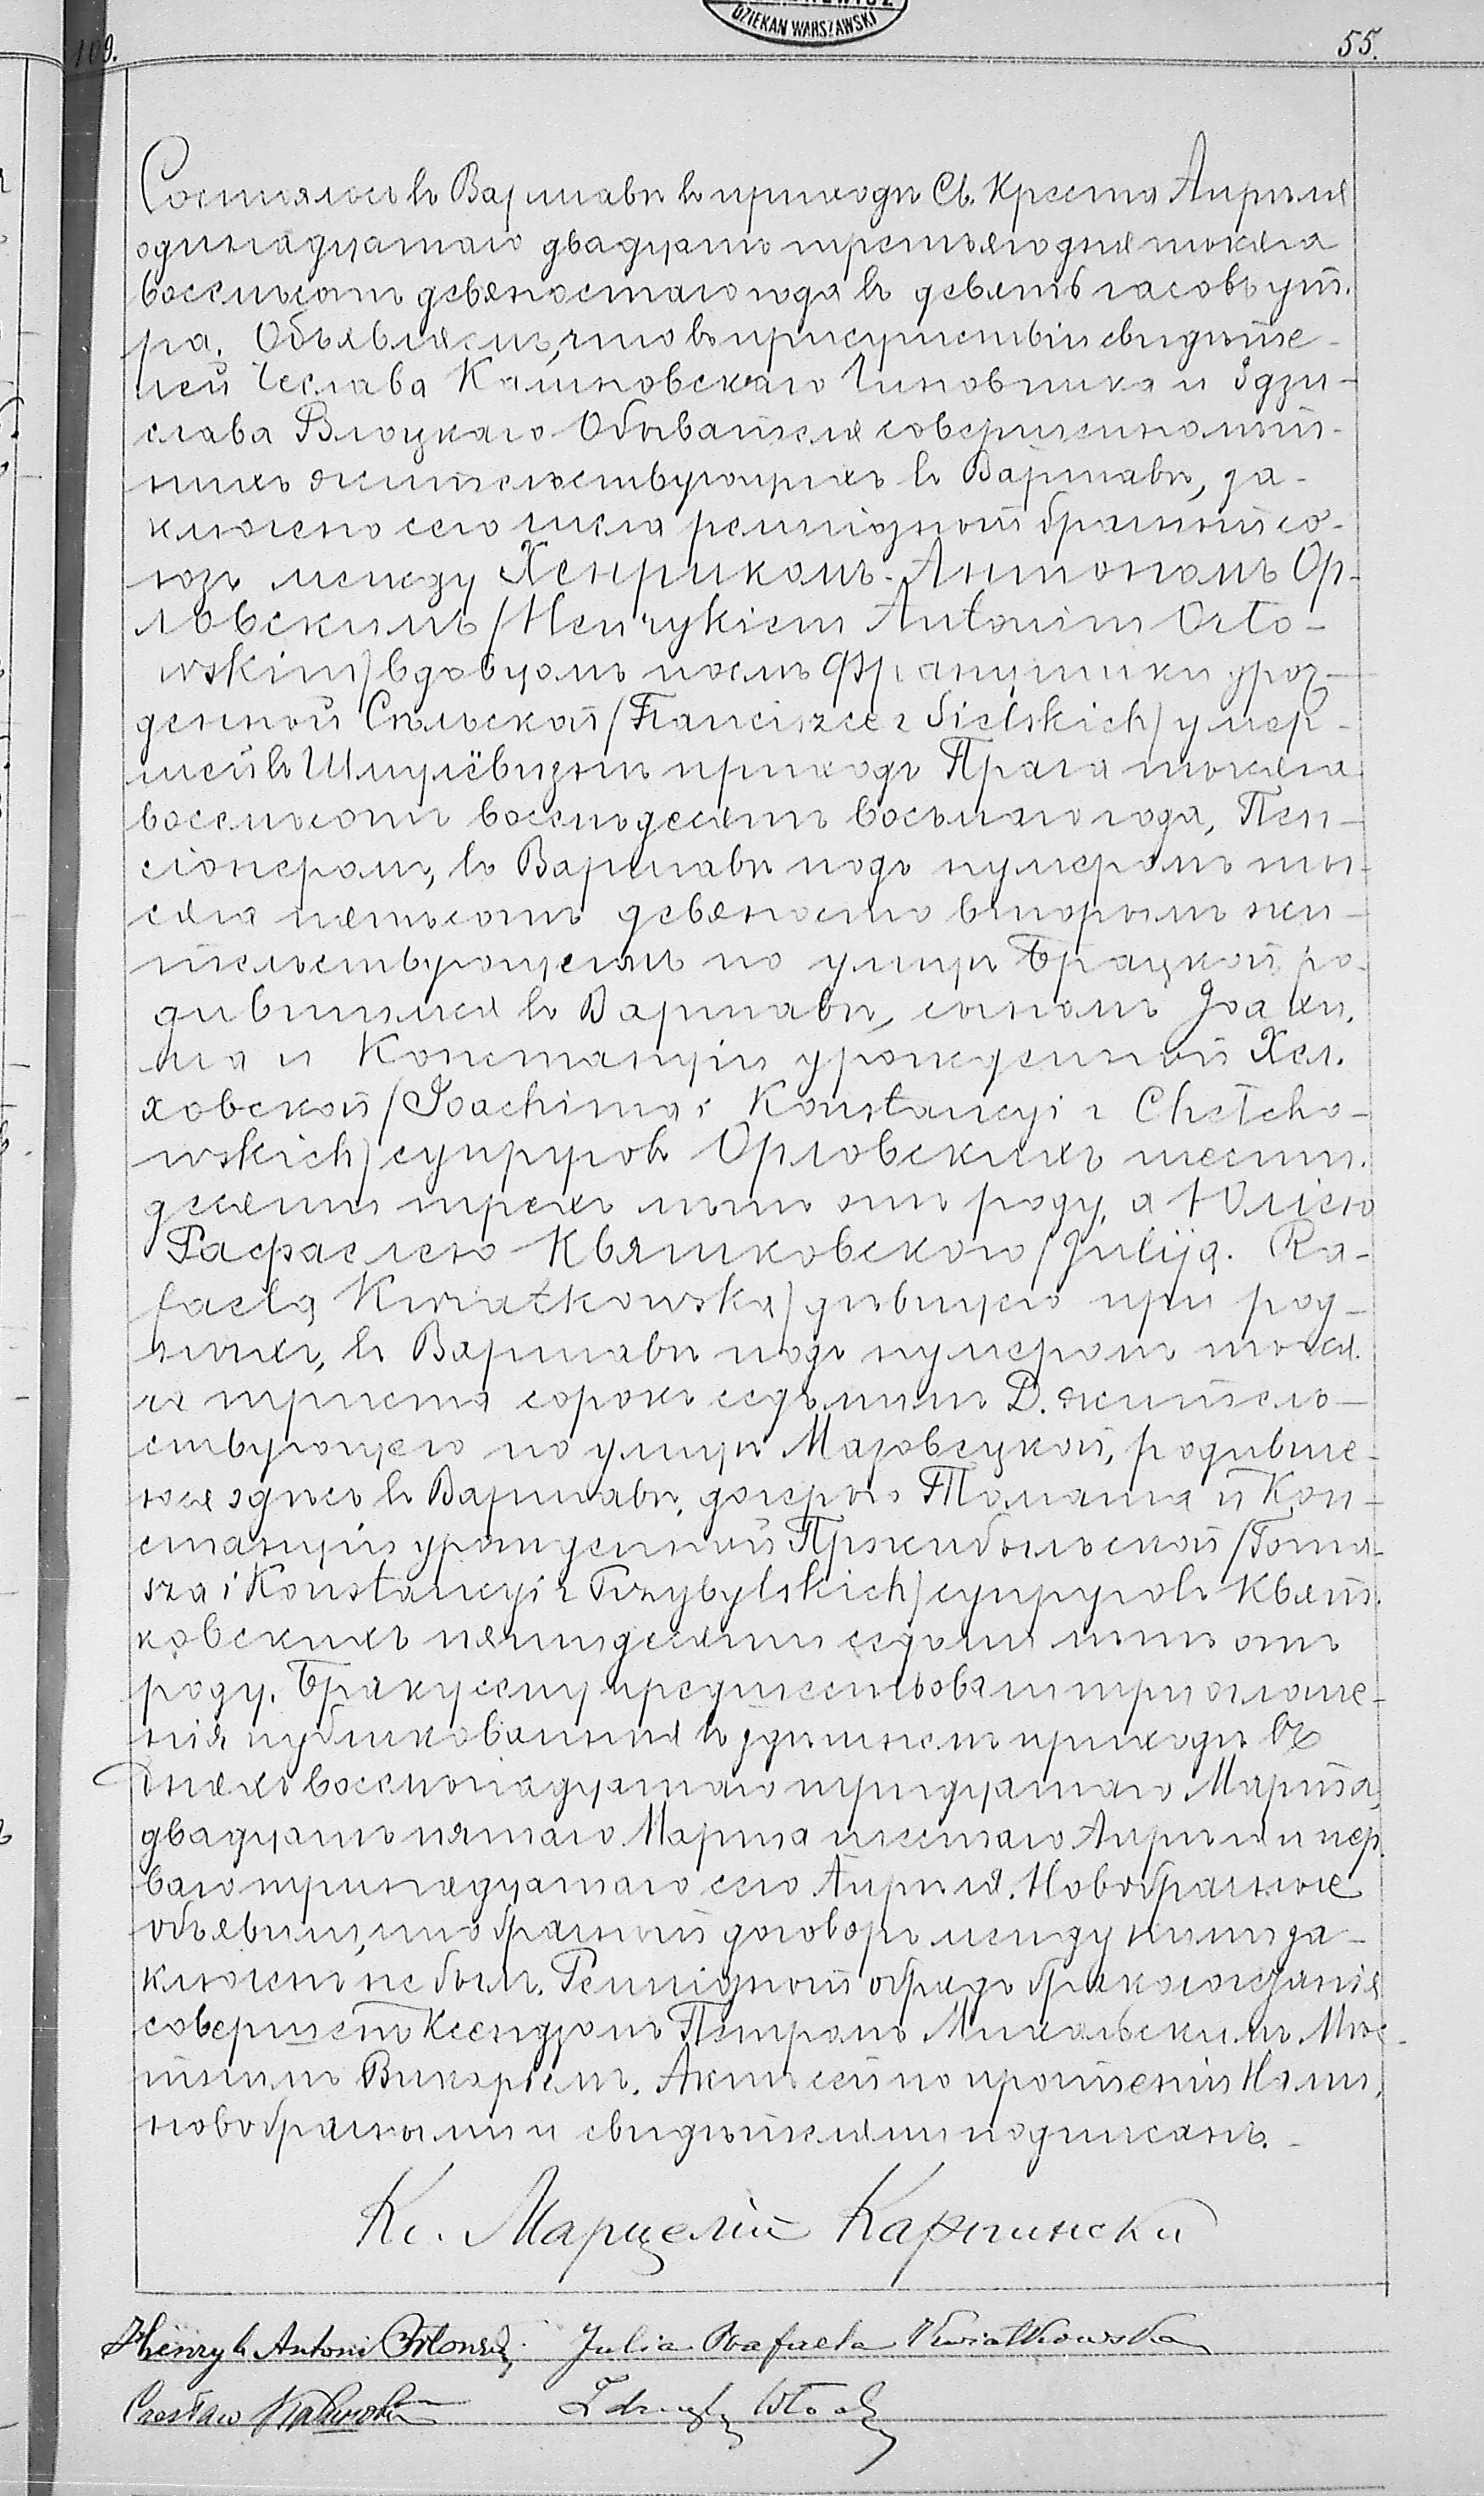 DZIEKAN WARSZAWSKI
109.
55.
Состоялось въ Варшавѣ въ приходѣ Св. Креста Апрѣля
одинадцатаго двадцать третьяго дня тысяча
восемьсотъ девяностаго года въ девять часовъ ут-
ра. Объявляемъ, что въ присутствіи свидѣте-
лей Чеслава Калиновскаго Чиновника и Здзи-
слава Влоцкаго Обывателя совершеннолѣт-
нихъ жительствующихъ въ Варшавѣ, за-
ключено сего числа религіозный брачный со-
юзъ между Хенрикомъ-Антономъ Ор-
ловскимъ /Henrykiem Antonim Orło-
wskim/ вдовцомъ послѣ Францишки урож-
денной Сѣльской /Franciszce z Sielskich/ умер-
шей въ Шмулёвизнѣ приходѣ Прага тысяча
восемьсотъ восемьдесятъ восьмаго года, Пен-
сіонеромъ, въ Варшавѣ подъ нумеромъ ты-
сяча пятьсотъ девяносто вторымъ жи-
тельствующимъ по улицѣ Брацкой, ро-
дившимся въ Варшавѣ, сыномъ Іоахи-
ма и Констанціи урожденной Хел-
ховской /Joachima i Konstancyi z Chełcho-
wskich/ супруговъ Орловскихъ шести-
десяти трехъ лѣтъ отъ роду, а Юліею
Рафаелею Квятковскою /Juliją Ra-
faelą Kwiatkowską/ дѣвицею при род-
ныхъ, въ Варшавѣ подъ нумеромъ тыся-
ча триста сорокъ седьмымъ D. житель-
ствующею по улицѣ Мазовецкой, родивше-
юся здѣсь въ Варшавѣ, дочерью Томаша и Кон-
станціи урожденной Пржибыльской /Toma-
sza i Konstancyi z Przybylskich/ супруговъ Квят-
ковскихъ пятидесяти седьми лѣтъ отъ
роду. Браку сему предшествовали три оглаше-
нія публикованныя въ здѣшнемъ приходѣ въ
дняхъ восемнадцатаго тридцатаго Марта,
двадцать пятаго Марта шестаго Апрѣля и пер-
ваго тринадцатаго сего Апрѣля. Новобрачные
объявили, что брачный договоръ между ними за-
ключенъ не былъ. Религіозный обрядъ бракосочетанія
совершенъ Ксендзомъ Петромъ Михальскимъ Мѣс-
тнымъ Викаріемъ. Актъ сей по прочтеніи Нами,
новобрачными и свидѣтелями подписанъ.
Кс. Марцелій Карпински
Henryk Antoni Orłowski
Julia Rafaela Kwiatkowska
Czesław Kalinowski